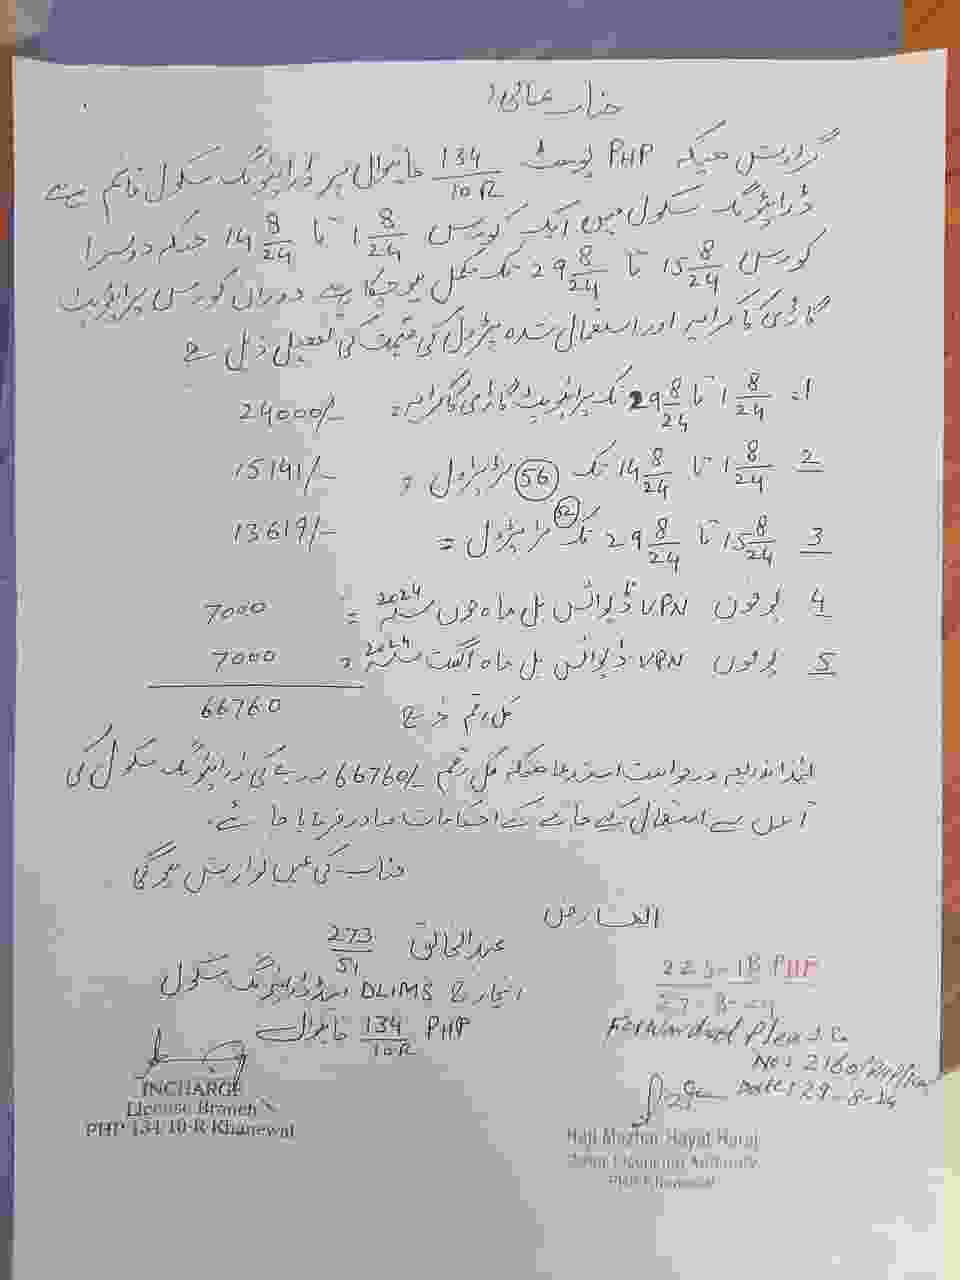 جناب عالی!
گزارش ہیکہ PHP پوسٹ 134/10R خانیوال پر ڈرائیونگ سکول قائم ہے
ڈرائیونگ سکول میں ایک کورس 1 8/24 تا 14 8/24 جبکہ دوسرا
کورس 15 8/24 تا 29 8/24 تک مکمل ہو چکا ہے دوران کورس پرائیویٹ
گاڑی کا کرایہ اور استعمال شدہ پٹرول کی قیمت کی تفصیل ذیل ہے
1. 1 8/24 تا 29 8/24 تک پرائیویٹ گاڑی کا کرایہ = 24000/-
2 1 8/24 تا 14 8/24 تک (56) لٹر پٹرول = 15141/-
3 15 8/24 تا 29 8/24 تک (52) لٹر پٹرول = 13619/-
4 یوفون VPN ڈیوائس بل ماہ جون 2024 = 7000
5 یوفون VPN ڈیوائس بل ماہ اگست 2024 = 7000
کل رقم 66760
لہذا بذریعہ درخواست استدعا ہیکہ کل رقم 66760/- روپے کی ڈرائیونگ سکول کی
سے استعمال کیے جانے کے احکامات صادر فرمایا جائے۔
جناب کی عین نوازش ہوگی
العارض
عبدالخالق 273/51
انچارج DLIMS اینڈ ڈرائیونگ سکول
PHP 134/10R خانیوال
INCHARGE
License Branch
PHP 134/10-R Khanewal
PHP
Forwarded Please
No: 2160
Date: 29-8-24
Haji Mazhar Hayat Haraj
Licensing Authority
PHP Khanewal